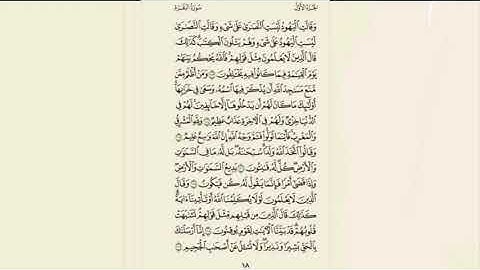 الجزء الأول
سورة البقرة
وَقَالَتِ ٱلْيَهُودُ لَيْسَتِ ٱلنَّصَٰرَىٰ عَلَىٰ شَىْءٍ وَقَالَتِ ٱلنَّصَٰرَىٰ
لَيْسَتِ ٱلْيَهُودُ عَلَىٰ شَىْءٍ وَهُمْ يَتْلُونَ ٱلْكِتَٰبَ ۗ كَذَٰلِكَ
قَالَ ٱلَّذِينَ لَا يَعْلَمُونَ مِثْلَ قَوْلِهِمْ ۚ فَٱللَّهُ يَحْكُمُ بَيْنَهُمْ
يَوْمَ ٱلْقِيَٰمَةِ فِيمَا كَانُوا۟ فِيهِ يَخْتَلِفُونَ ١١٣ وَمَنْ أَظْلَمُ مِمَّن
مَّنَعَ مَسَٰجِدَ ٱللَّهِ أَن يُذْكَرَ فِيهَا ٱسْمُهُۥ وَسَعَىٰ فِى خَرَابِهَآ ۚ
أُو۟لَٰٓئِكَ مَا كَانَ لَهُمْ أَن يَدْخُلُوهَآ إِلَّا خَآئِفِينَ ۚ لَهُمْ فِى
ٱلدُّنْيَا خِزْىٌ وَلَهُمْ فِى ٱلْءَاخِرَةِ عَذَابٌ عَظِيمٌ ١١٤ وَلِلَّهِ ٱلْمَشْرِقُ
وَٱلْمَغْرِبُ ۚ فَأَيْنَمَا تُوَلُّوا۟ فَثَمَّ وَجْهُ ٱللَّهِ ۚ إِنَّ ٱللَّهَ وَٰسِعٌ عَلِيمٌ ١١٥
وَقَالُوا۟ ٱتَّخَذَ ٱللَّهُ وَلَدًا ۗ سُبْحَٰنَهُۥ ۖ بَل لَّهُۥ مَا فِى ٱلسَّمَٰوَٰتِ
وَٱلْأَرْضِ ۖ كُلٌّ لَّهُۥ قَٰنِتُونَ ١١٦ بَدِيعُ ٱلسَّمَٰوَٰتِ وَٱلْأَرْضِ ۖ
وَإِذَا قَضَىٰٓ أَمْرًا فَإِنَّمَا يَقُولُ لَهُۥ كُن فَيَكُونُ ١١٧ وَقَالَ
ٱلَّذِينَ لَا يَعْلَمُونَ لَوْلَا يُكَلِّمُنَا ٱللَّهُ أَوْ تَأْتِينَآ ءَايَةٌ ۗ
كَذَٰلِكَ قَالَ ٱلَّذِينَ مِن قَبْلِهِم مِّثْلَ قَوْلِهِمْ ۘ تَشَٰبَهَتْ
قُلُوبُهُمْ ۗ قَدْ بَيَّنَّا ٱلْءَايَٰتِ لِقَوْمٍ يُوقِنُونَ ١١٨ إِنَّآ أَرْسَلْنَٰكَ
بِٱلْحَقِّ بَشِيرًا وَنَذِيرًا ۖ وَلَا تُسْـَٔلُ عَنْ أَصْحَٰبِ ٱلْجَحِيمِ ١١٩
١٨